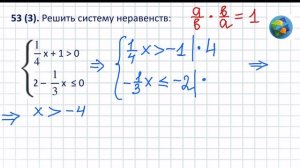 53 (3). Решить систему неравенств: a/b · b/a = 1
{ 1/4 x + 1 > 0 ⇒ { 1/4 x > -1 | · 4 ⇒
2 - 1/3 x ≤ 0 - 1/3 x ≤ -2 | ·
⇒ x > -4